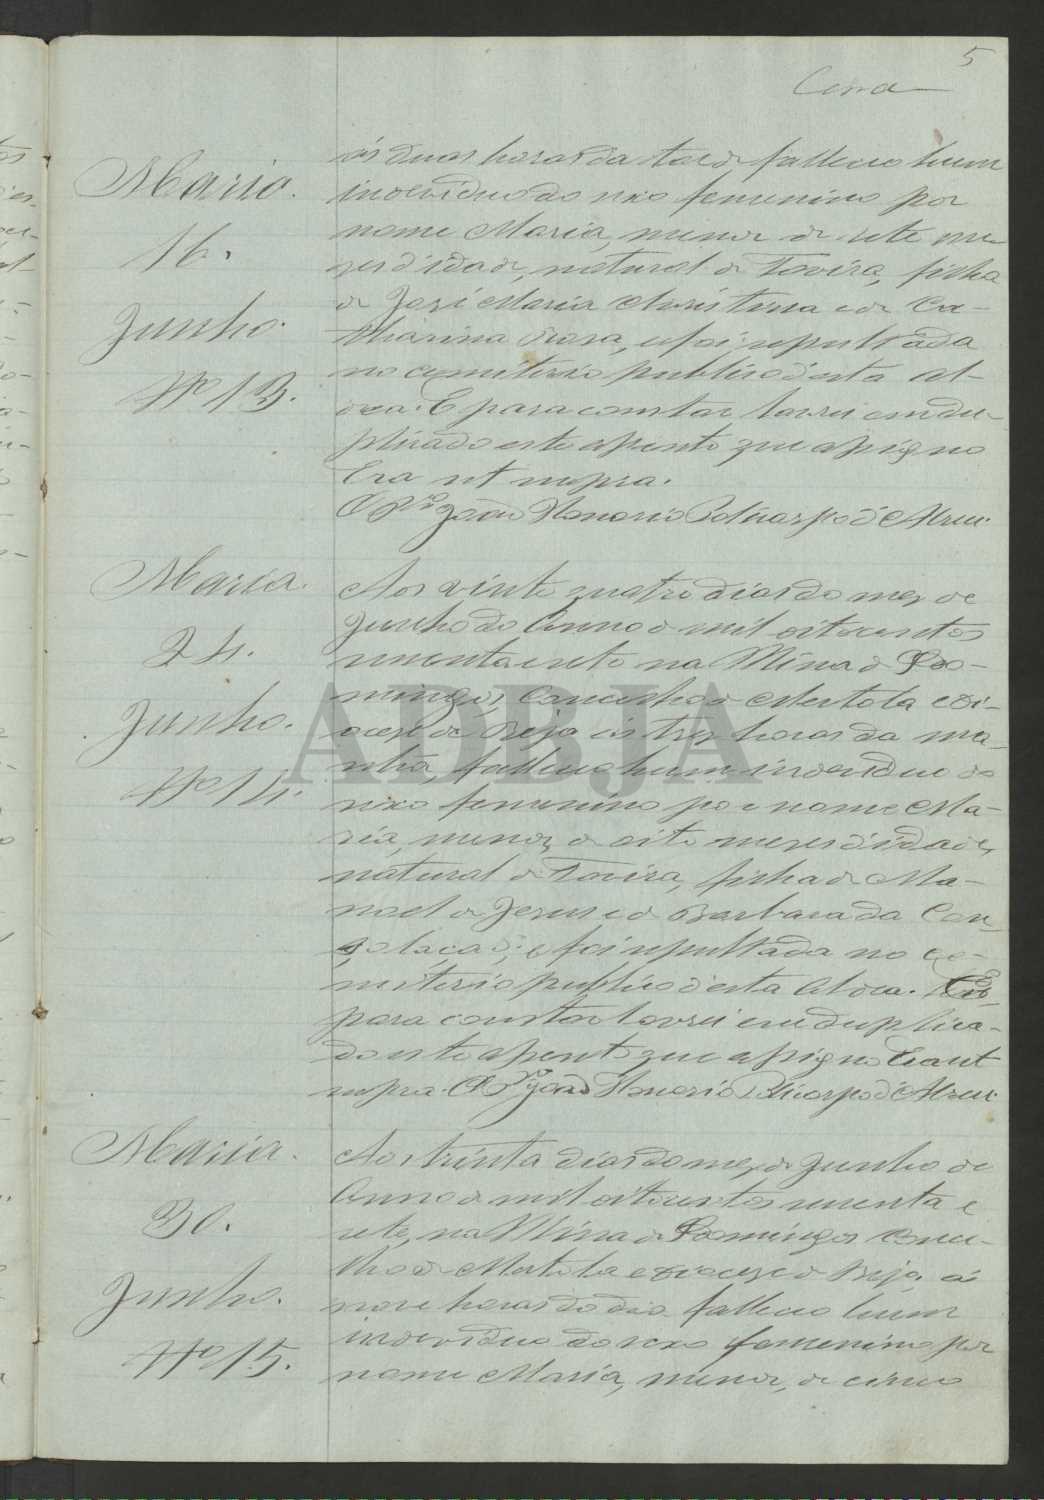 5
Maria.
16.
Junho.
Nº 13.
ás duas horas da tarde falleceo hum
individuo do sexo femenino por
nome Maria, menor de sete me-
zes d'idade, natural de Tavira, filha
de José Maria Christina e de Ca-
tharina Roza, e foi sepultada
no cemiterio publico d'esta al-
dea. E para constar lavrei em du-
plicado este assento que assigno
Era ut supra.
O Pr.º João Honorio Policarpo d'Abreu.
Maria.
24.
Junho.
Nº 14.
Aos vinte quatro dias do mez de
Junho do Anno de mil oitocentos
e sete na Mina de S. Do-
mingos, Concelho de Mertola e Di-
ocese de Beja ás tres horas da ma-
nhã, falleceo hum individuo do
sexo femenino por nome Ma-
ria, menor, de oito mezes d'idade,
natural de Tavira, filha de Ma-
noel de Jesus e de Barbara da Con-
solação, e foi sepultada no ce-
miterio publico d'esta Aldea. E
para constar lavrei em duplica-
do este assento que assigno Era ut
supra. O Pr.º João Honorio Policarpo d'Abreu.
Maria.
30.
Junho.
Nº 15.
Aos trinta dias do mez de Junho do
Anno de mil oitocentos e
sete, na Mina de S. Domingos Conce-
lho de Mertola e Diocese de Beja, ás
nove horas do dia falleceo hum
individuo do sexo femenino por
nome Maria, menor, de cinco
ADBJA